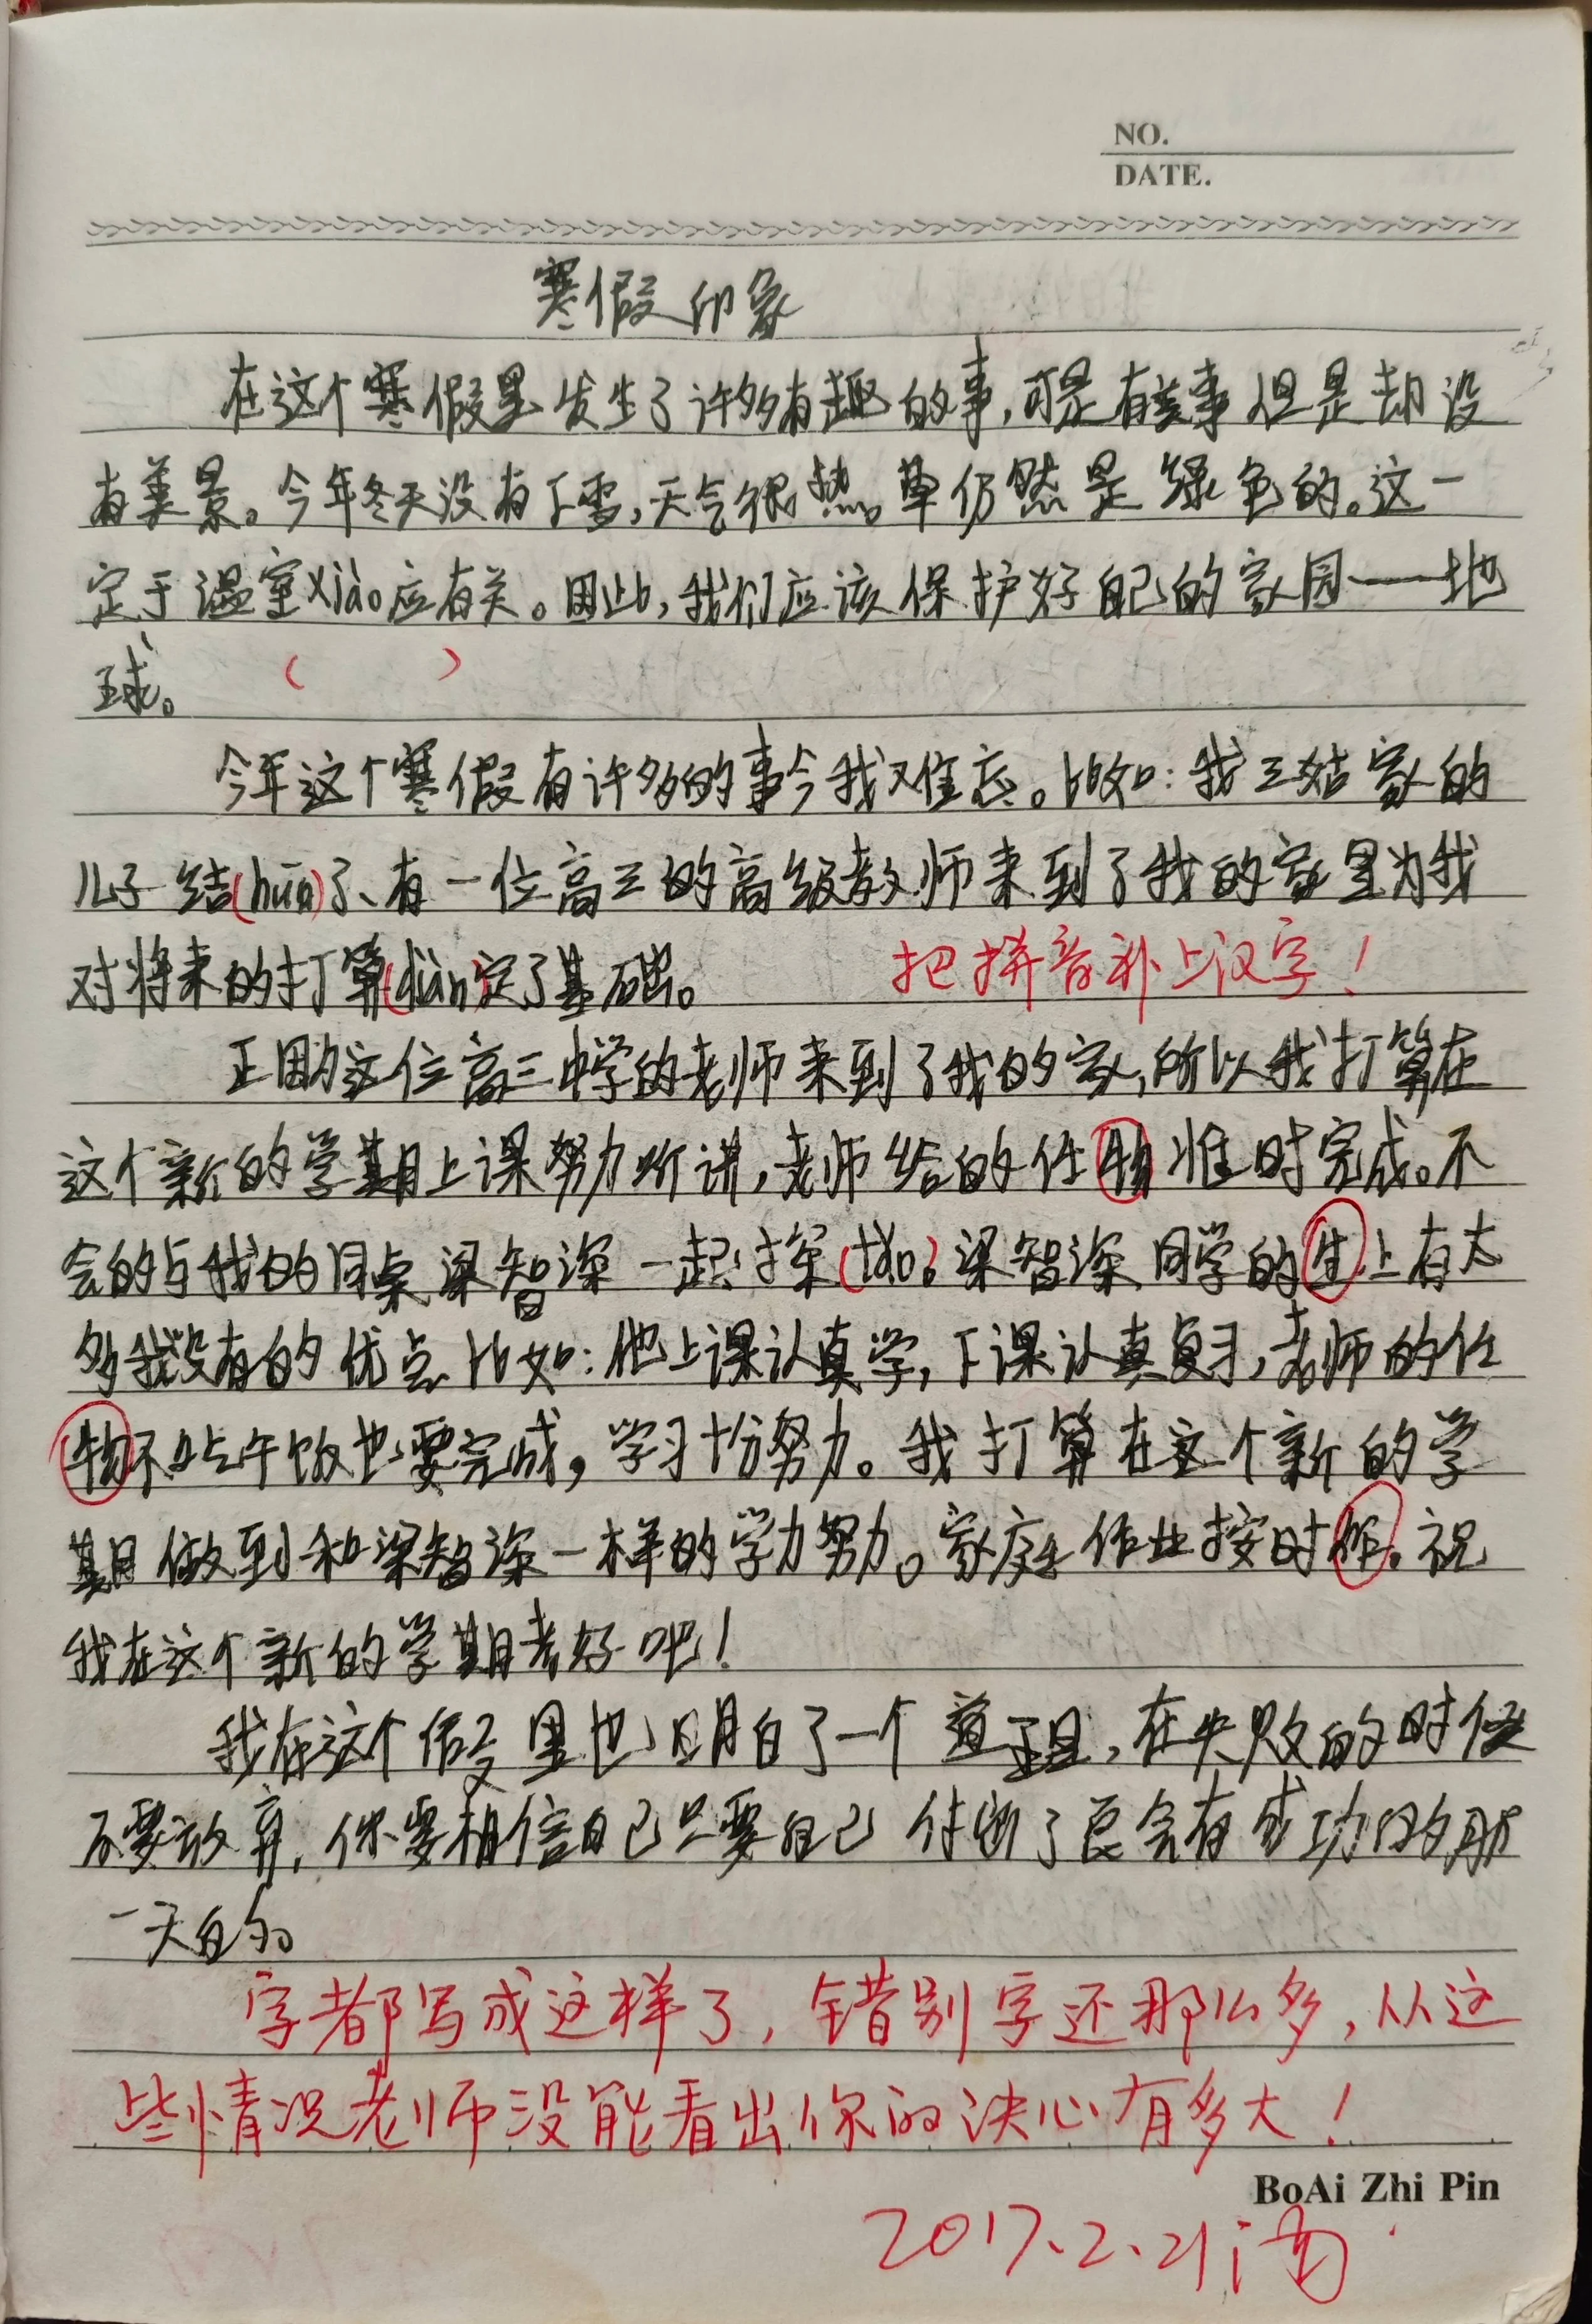 NO.
DATE.
寒假印象
在这个寒假里发生了许多有趣的事,可是有些事但是却没
有美景。今年冬天没有下雪,天气很热。草仍然是绿色的。这一
定于温室xiào应有关。因此,我们应该保护好自己的家园——地
球。 ( )
今年这个寒假有许多的事令我难忘。比如:我三姑家的
儿子结(hūn)了、有一位高三的高级教师来到了我的家里为我
对将来的打算(diàn)定了基础。 把拼音补上汉字!
正因为这位高三中学的老师来到了我的家,所以我打算在
这个新的学期上课努力听讲,老师给的任物准时完成。不
会的与我的同桌梁智深一起探(tǎo)。梁智深同学的生上有太
多我没有的优点比如:他上课认真学,下课认真复习,老师的任
物不吃午饭也要完成,学习十份努力。我打算在这个新的学
期做到和梁智深一样的学力努力。家庭作业按时作。祝
我在这个新的学期考好吧!
我在这个假里也明白了一个道理,在失败的时候
不要放弃,你要相信自己只要自己付出了总会有成功的那
一天的。
字都写成这样了,错别字还那么多,从这
些情况老师没能看出你的决心有多大!
BoAi Zhi Pin
2017.2.21